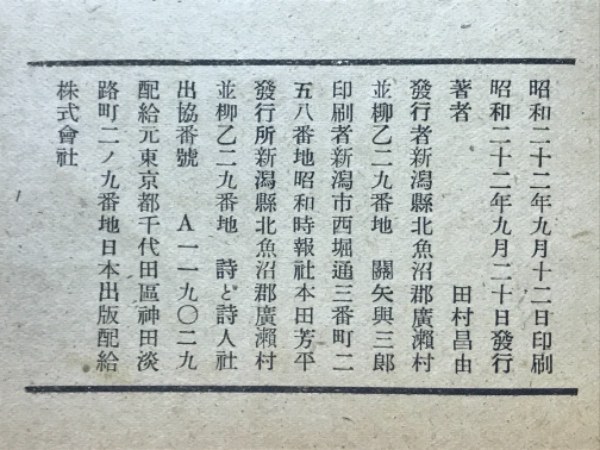 昭和二十二年九月十二日印刷
昭和二十二年九月二十日發行
著者　田村昌由
發行者新潟縣北魚沼郡廣瀬村
並柳乙二九番地　關矢與三郎
印刷者新潟市西堀通三番町二
五八番地昭和時報社本田芳平
發行所新潟縣北魚沼郡廣瀬村
並柳乙二九番地　詩と詩人社
出協番號　A一一九〇二九
配給元東京都千代田區神田淡
路町二ノ九番地日本出版配給
株式會社